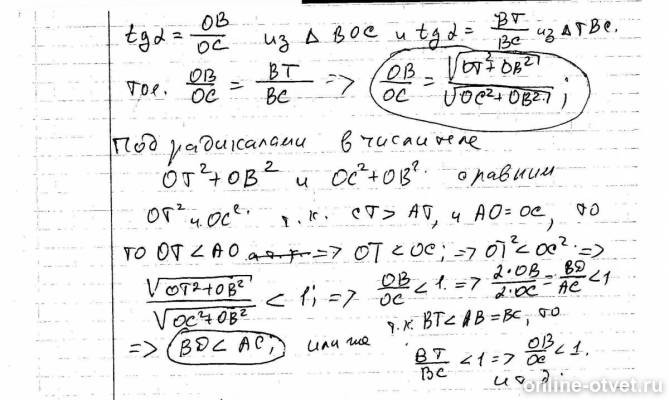 tgα = OB/OC из △ BOC и tgα = BT/BC из △TBC.
т.е. OB/OC = BT/BC => OB/OC = √(OT²+OB²)/√(OC²+OB²);
Под радикалами в числителе
OT²+OB² и OC²+OB² сравним
OT² и OC². т.к. CT > AT, и AO=OC, то
то OT < AO => OT < OC; => OT² < OC² =>
√(OT²+OB²)/√(OC²+OB²) < 1; => OB/OC < 1. => 2·OB/2·OC = BD/AC < 1
=> BD < AC; или же т.к. BT < AB = BC, то
BT/BC < 1 => OB/OC < 1.
и т.д.
online-otvet.ru